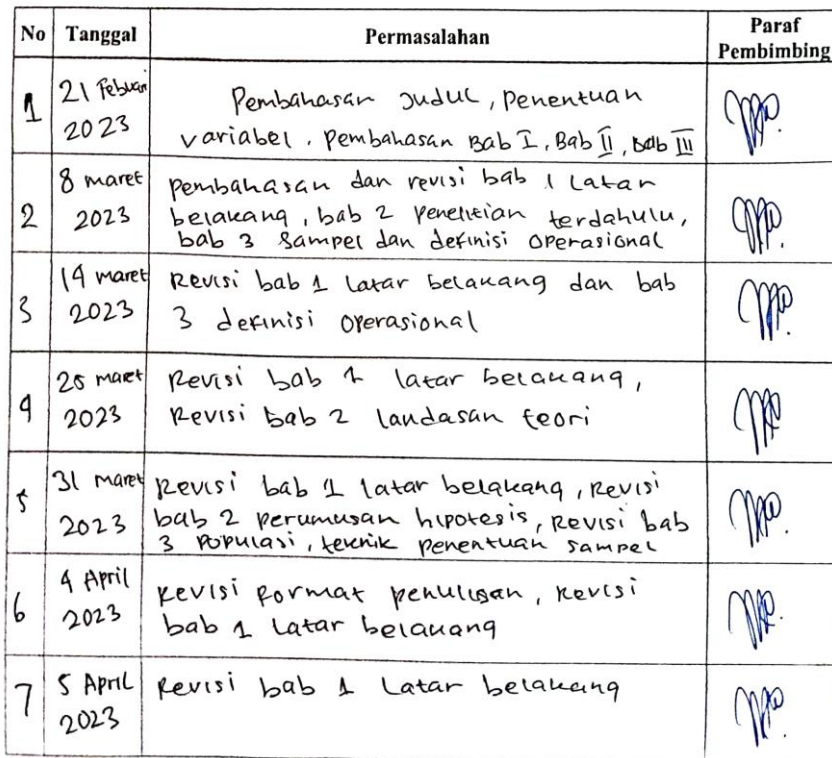 No Tanggal Permasalahan Paraf
Pembimbing
1 21 Febuari Pembahasan Judul, penentuan
2023 variabel, Pembahasan Bab I, Bab II, Bab III
8 maret pembahasan dan revisi bab 1 Latar
2 2023 belakang, bab 2 penelitian terdahulu,
bab 3 sampel dan definisi operasional
14 maret Revisi bab 1 latar belakang dan bab
3 2023 3 definisi operasional
maret Revisi bab 1 latar belakang,
4 2023 Revisi bab 2 landasan teori
31 maret Revisi bab 1 latar belakang, Revisi
5 2023 bab 2 perumusan hipotesis, Revisi bab
3 populasi, teknik penentuan sampel
4 April Revisi format penulisan, Revisi
6 2023 bab 1 Latar belakang
7 5 April Revisi bab 1 Latar belakang
2023